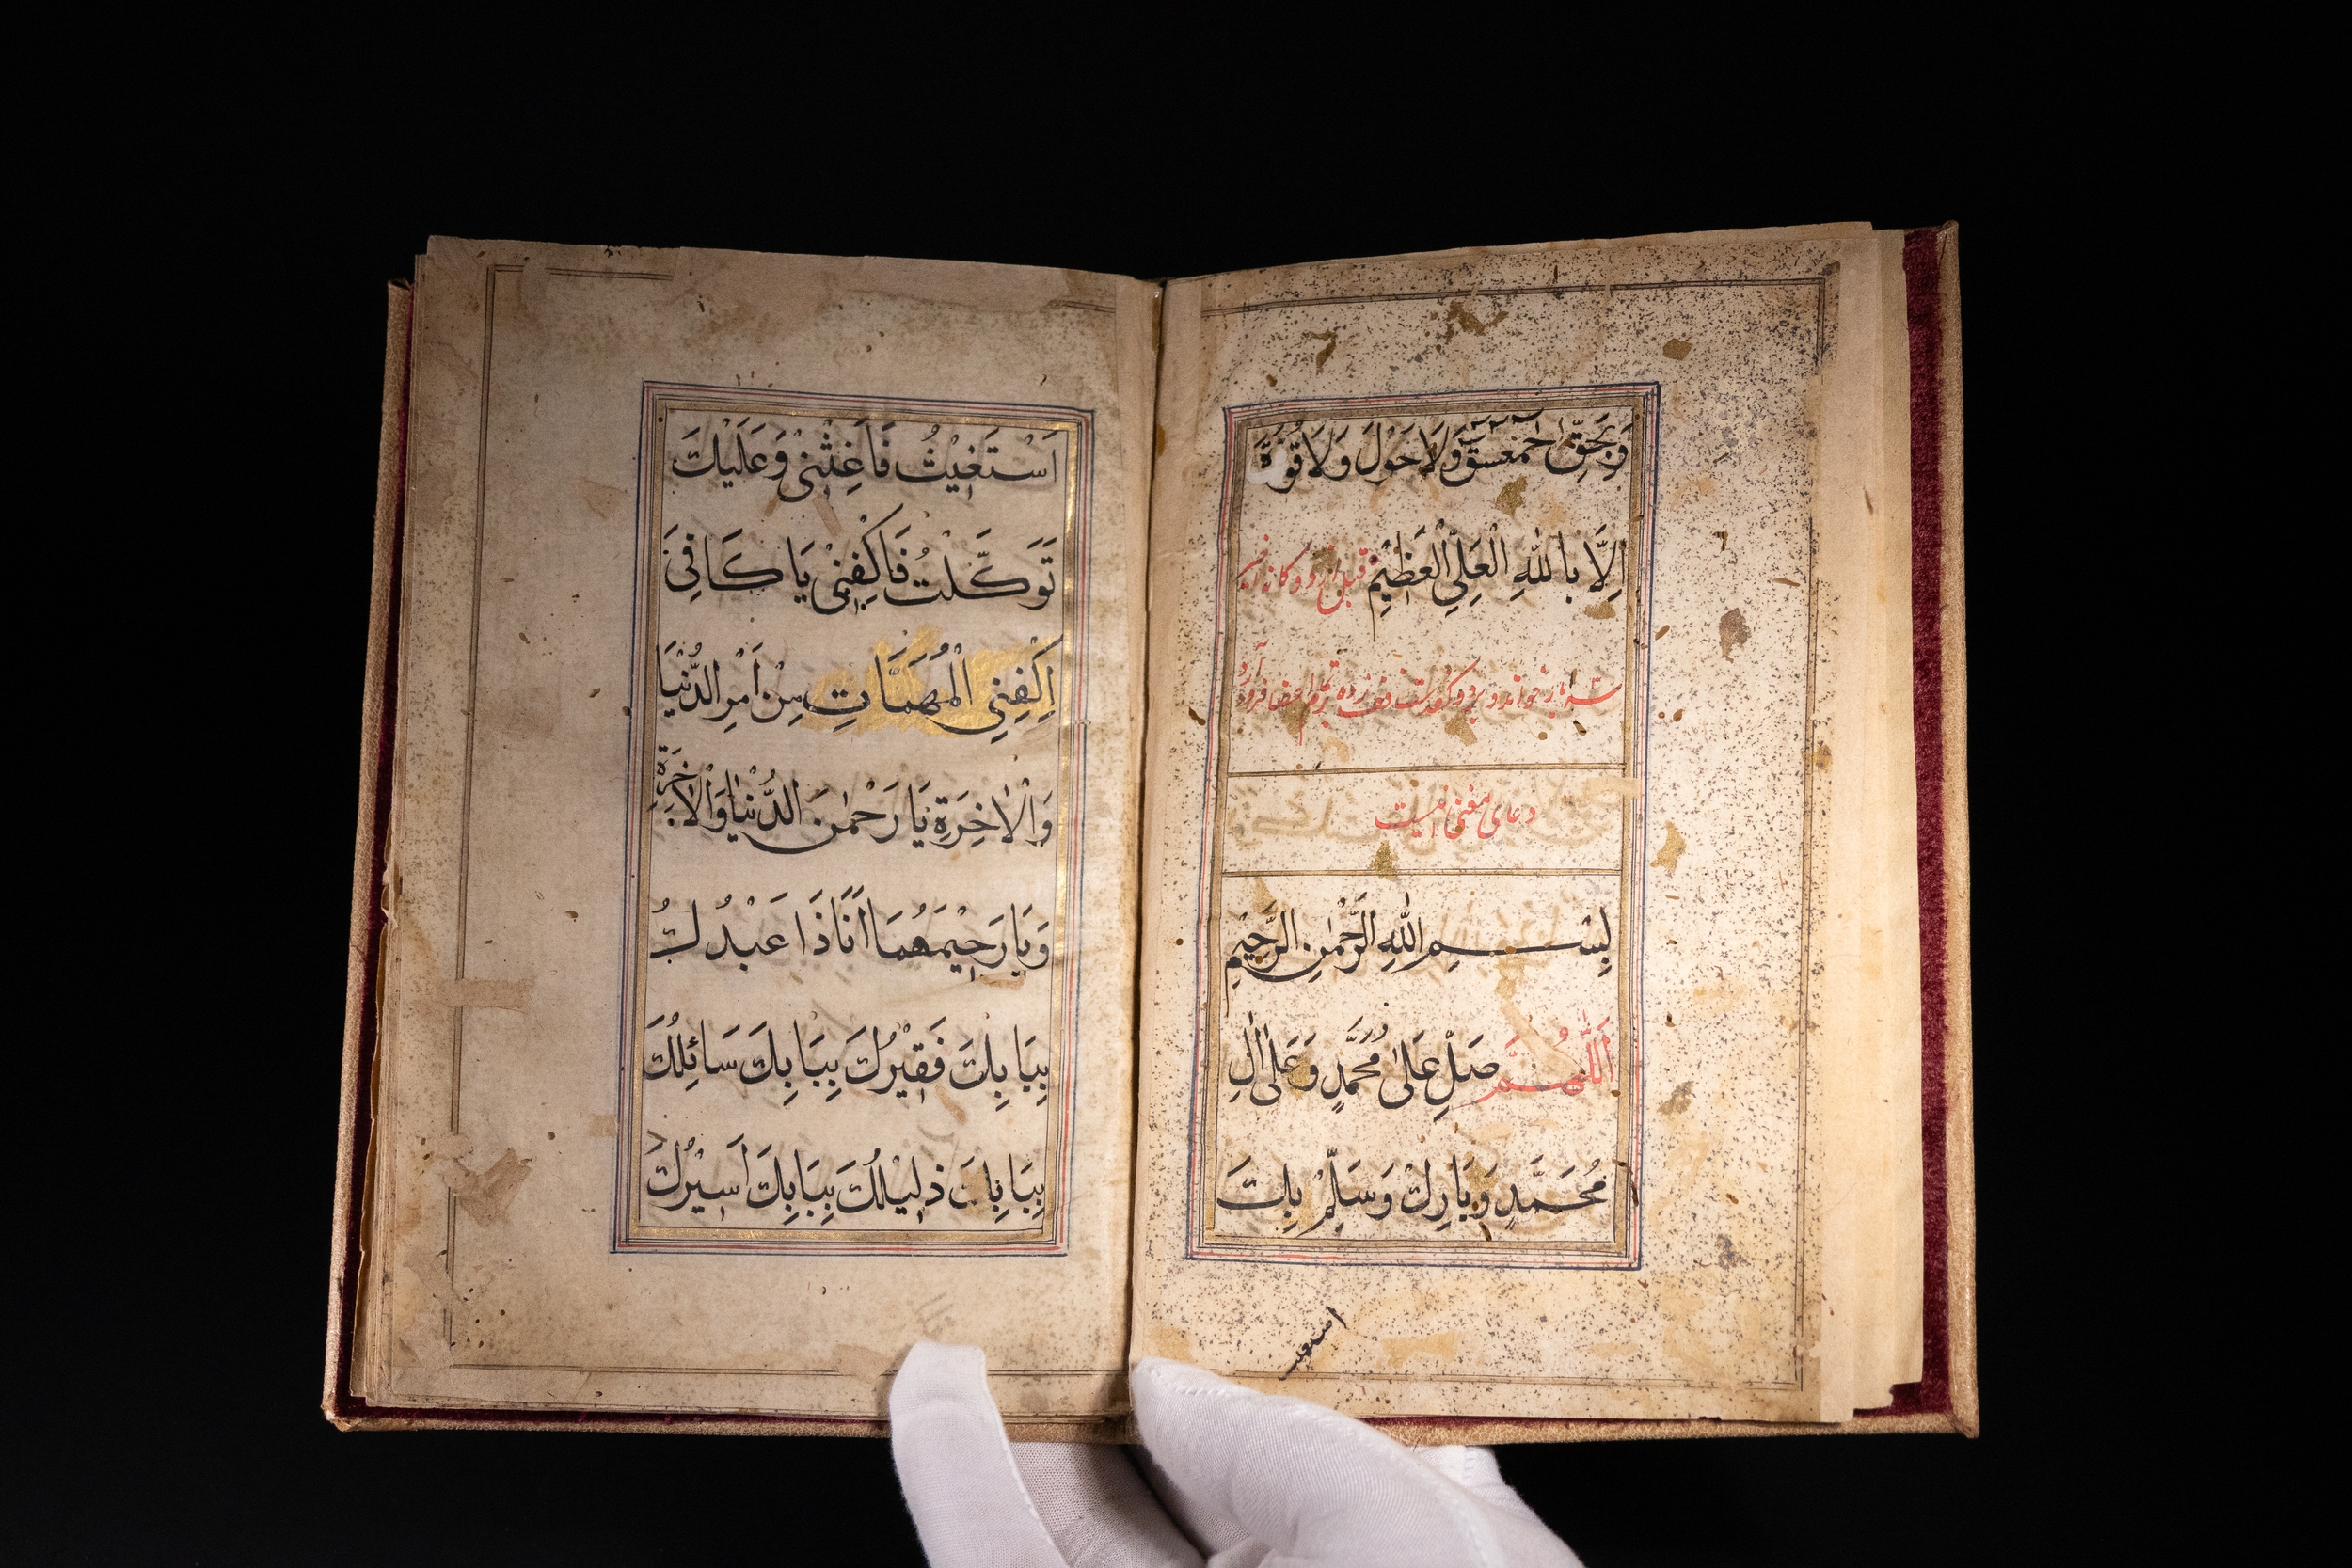 وَبِحَقِّ حٰمٓعسٓقٓ وَلَا حَوْلَ وَلَا قُوَّةَ
اِلَّا بِاللّٰهِ الْعَلِيِّ الْعَظِيْمِ قبل از دوگانه این
سه بار خواند و بر دو کف دست دم زده بر تمام اعضا فرود آرد
دعای مغنی اینست
بِسْمِ اللّٰهِ الرَّحْمٰنِ الرَّحِيْمِ
اَللّٰهُمَّ صَلِّ عَلٰى مُحَمَّدٍ وَعَلٰى اٰلِ
مُحَمَّدٍ وَبَارِكْ وَسَلِّمْ بِكَ
اَسْتَغِيْثُ فَاَغِثْنِيْ وَعَلَيْكَ
تَوَكَّلْتُ فَاكْفِنِيْ يَا كَافِيَ
اِكْفِنِي الْمُهِمَّاتِ مِنْ اَمْرِ الدُّنْيَا
وَالْاٰخِرَةِ يَا رَحْمٰنَ الدُّنْيَا وَالْاٰخِرَةِ
وَيَا رَحِيْمَهُمَا اَنَا ذَا عَبْدُكَ
بِبَابِكَ فَقِيْرُكَ بِبَابِكَ سَائِلُكَ
بِبَابِكَ ذَلِيْلُكَ بِبَابِكَ اَسِيْرُكَ